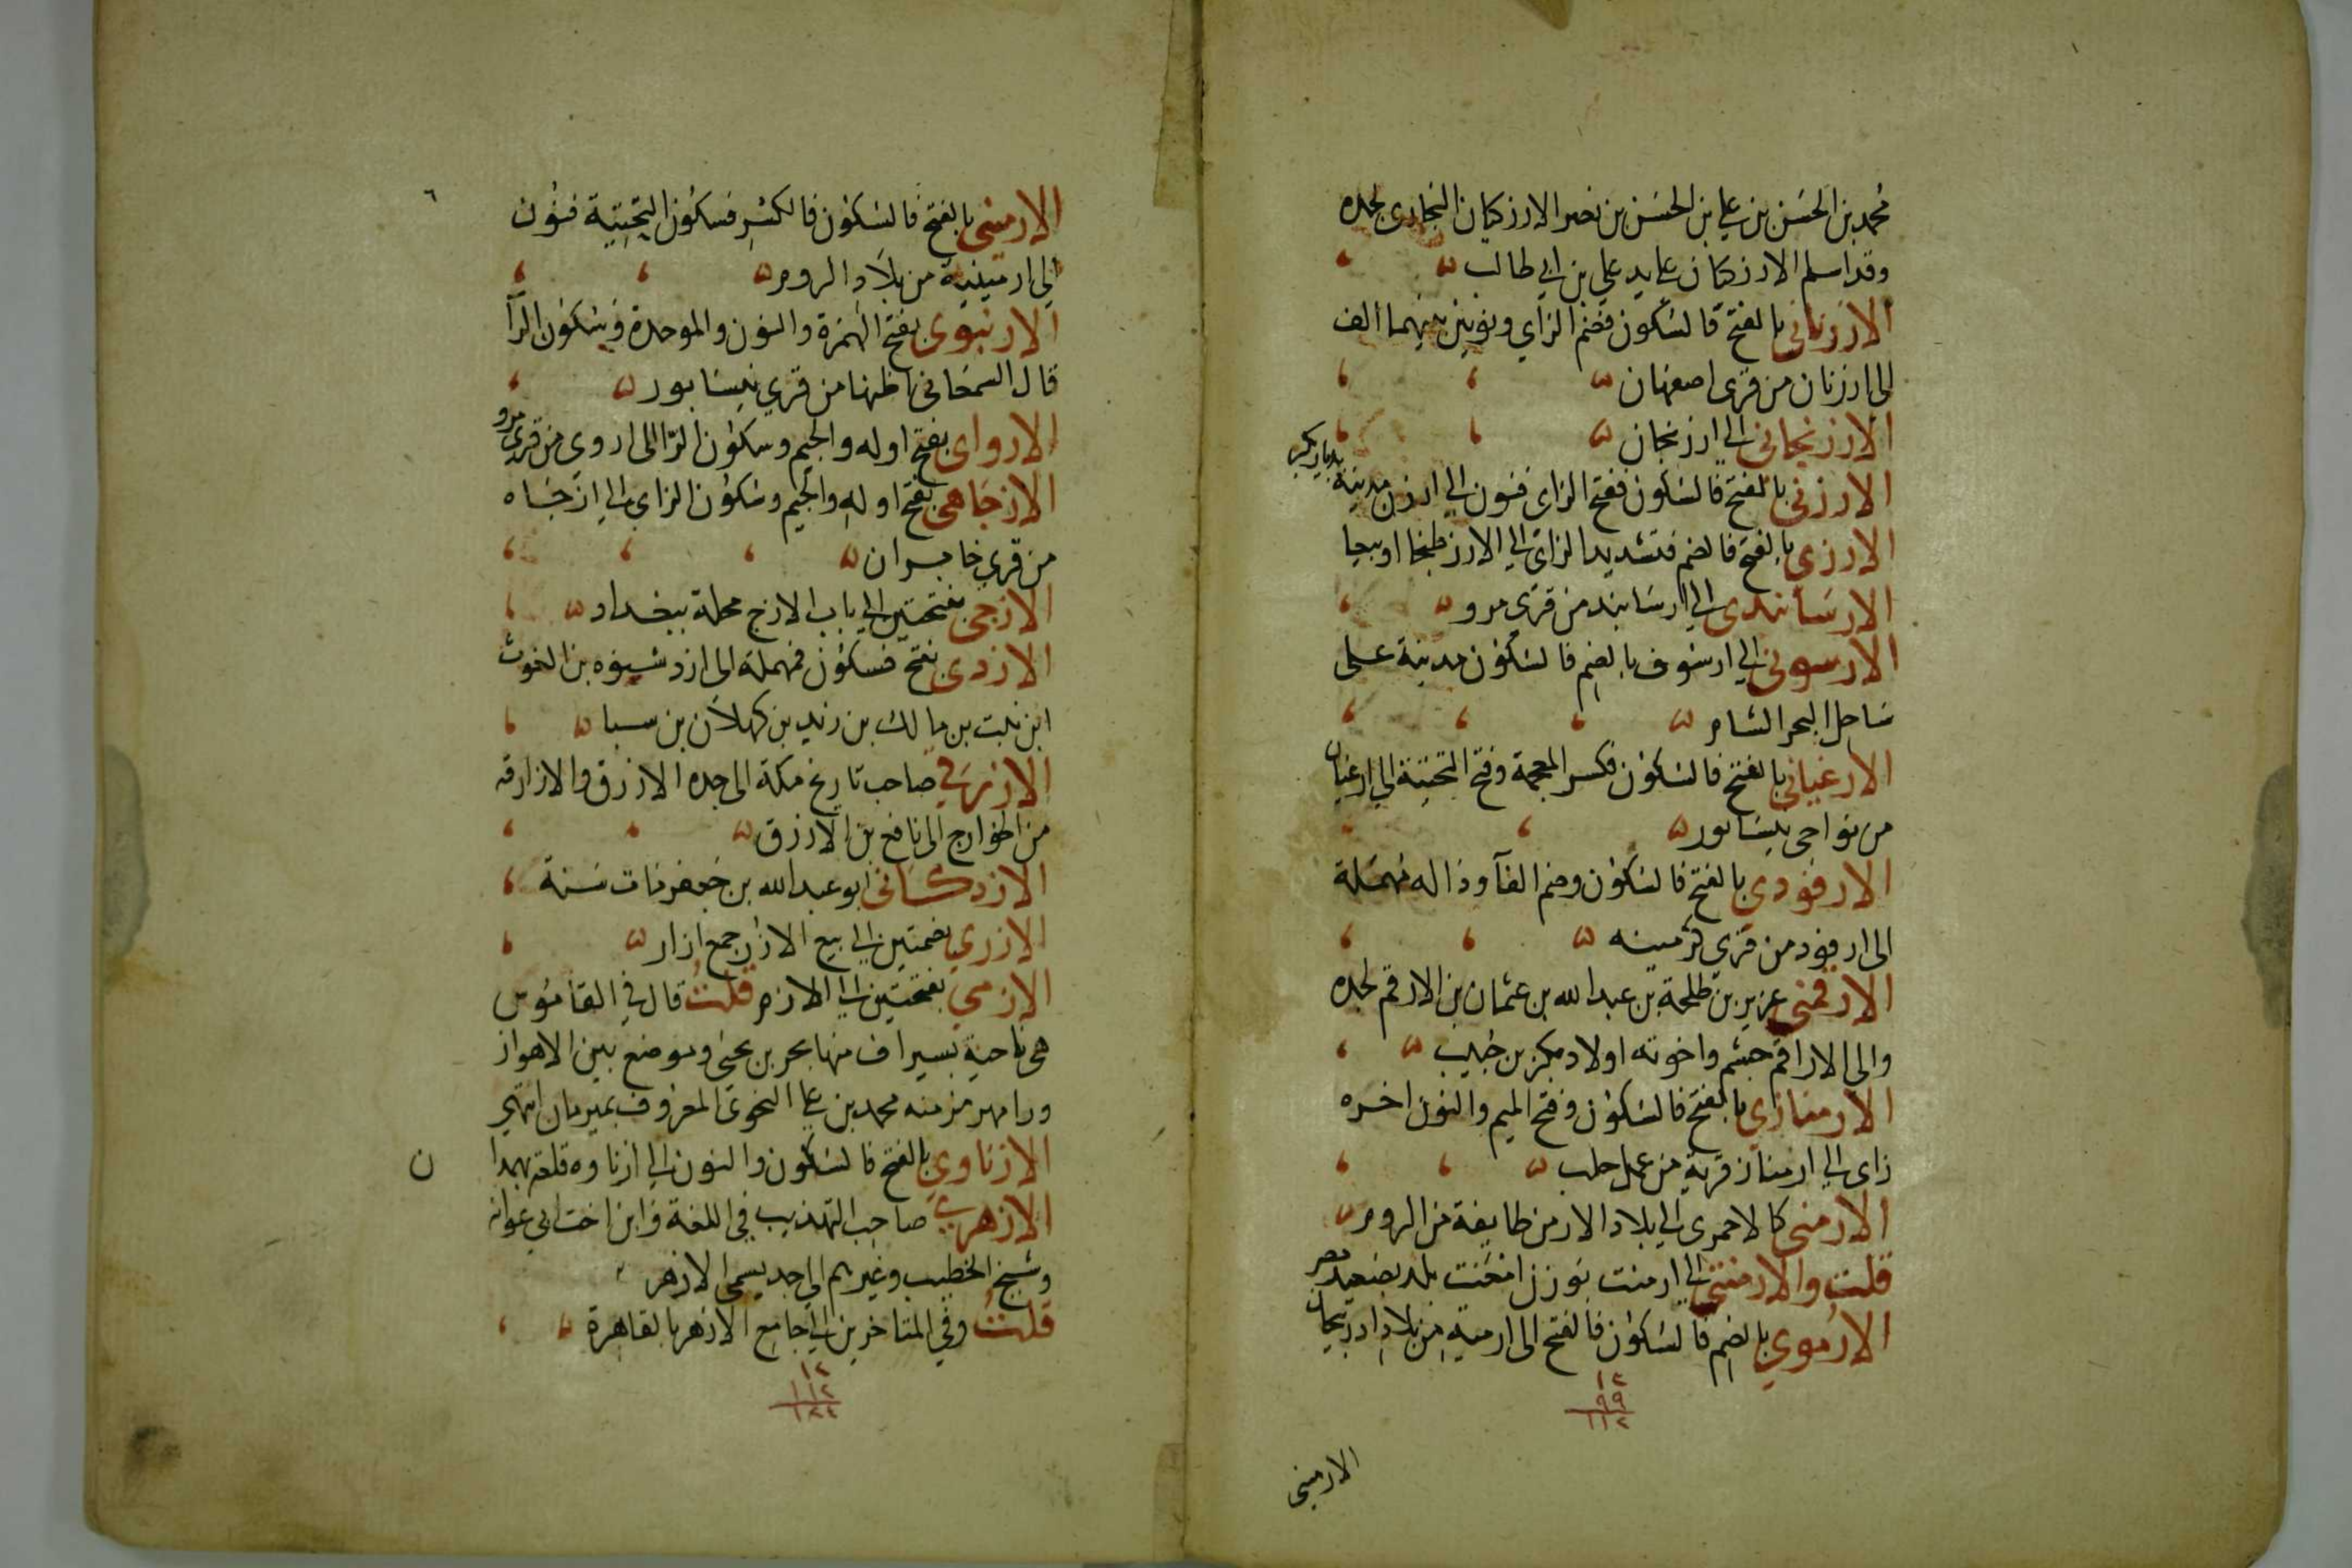 محمد بن الحسن بن علي بن الحسن بن نصر الارزكيان البخاري لجده
وقد اسلم الارزكيان على يد علي بن ابي طالب
الارزناني بالفتح فالسكون فضم الزاي ونونين بينهما الف
الى ارزنان من قرى اصفهان
الارزنجاني الى ارزنجان
الارزني بالفتح فالسكون ففتح الزاى فنون الى ارزن مدينة بديار بكر
الارزي بالفتح فالضم فتشديد الزاى الى الارز طبخا او بيعا
الارسابندى الى ارسابند من قرى مرو
الارسوفي الى ارسوف بالضم فالسكون مدينة على
ساحل البحر الشام
الارغياني بالفتح فالسكون فكسر المعجمة وفتح التحتية الى ارغيان
من نواحى نيسابور
الارفودي بالفتح فالسكون وضم الفآ وداله مهملة
الى ارفود من قرى كرمينه
الارقمي عزيز بن طلحة بن عبد الله بن عثمان بن الارقم لجده
والى الاراقم جشم واخوته اولاد بكر بن حبيب
الارمنازي بالفتح فالسكون وفتح الميم والنون اخره
زاى الى ارمناز قرية من عمل حلب
الارمنى كالاحمرى الى بلاد الارمن طايفة من الروم
قلت والارمنتى الى ارمنت بوزن امحنت بلد بصعيد مصر
الارموي بالضم فالسكون فالفتح الى ارمية من بلاد ادربيجان
١٢
٩٩
١١٢
الارمينى
٦
الارمينى بالفتح فالسكون فالكسر فسكون التحتية فنون
الى ارمينية من بلاد الروم
الارنبوى بفتح الهمزة والنون والموحدة وسكون الرآ
قال السمعاني اظنها من قرى نيسابور
الارواى بفتح اوله والجيم وسكون الرا الى اروى من قرى مرو
الازجاهى بفتح اوله والجيم وسكون الزاى الى ازجاه
من قرى خابران
الازجى بفتحتين الى باب الازج محلة ببغداد
الازدى بفتح فسكون فمهملة الى ازد شنوه بن الغوث
ابن نبت بن مالك بن زيد بن كهلان بن سبا
الازرقي صاحب تاريخ مكة الى جده الازرق والازارقه
من الخوارج الى نافع بن الازرق
الازدكاني ابو عبد الله بن جعفر مات سنة
الازري بضمتين الى بيع الازر جمع ازار
الازمي بفتحتين الى الازم قلت قال في القاموس
هى ناحية بسيراف منها بحر بن يحيى وموضع بين الاهواز
ورامهرمز منه محمد بن على النحوى المعروف بمبرمان انتهى
الازناوي بالفتح فالسكون والنون الى ازناوه قلعة بهمدا
ن
الازهري صاحب التهذيب في اللغة وابن اخت ابي عوانه
وشيخ الخطيب وغيرهم الى جد يسمى الازهر
قلت وفي المتاخرين الى جامع الازهر بالقاهرة
١٢
١١٢
١٢٤